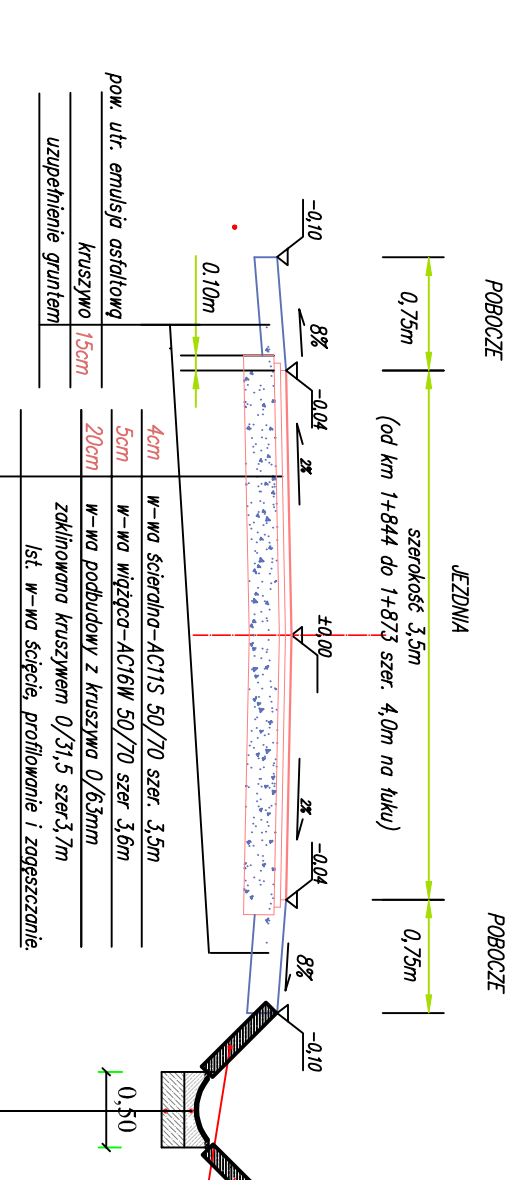 POBOCZE
JEZDNIA
POBOCZE
0,75m
szerokość 3,5m
(od km 1+844 do 1+873 szer. 4,0m na łuku)
0,75m
-0,10
8%
-0.04
2%
±0,00
2%
-0.04
8%
-0,10
0.10m
pow. utr. emulsja asfaltową
kruszywo 15cm
uzupełnienie gruntem
4cm w-wa ścieralna-AC11S 50/70 szer. 3,5m
5cm w-wa wiążąca-AC16W 50/70 szer 3,6m
20cm w-wa podbudowy z kruszywa 0/63mm
zaklinowana kruszywem 0/31,5 szer3,7m
Ist. w-wa ścięcie, profilowanie i zagęszczanie.
0,50